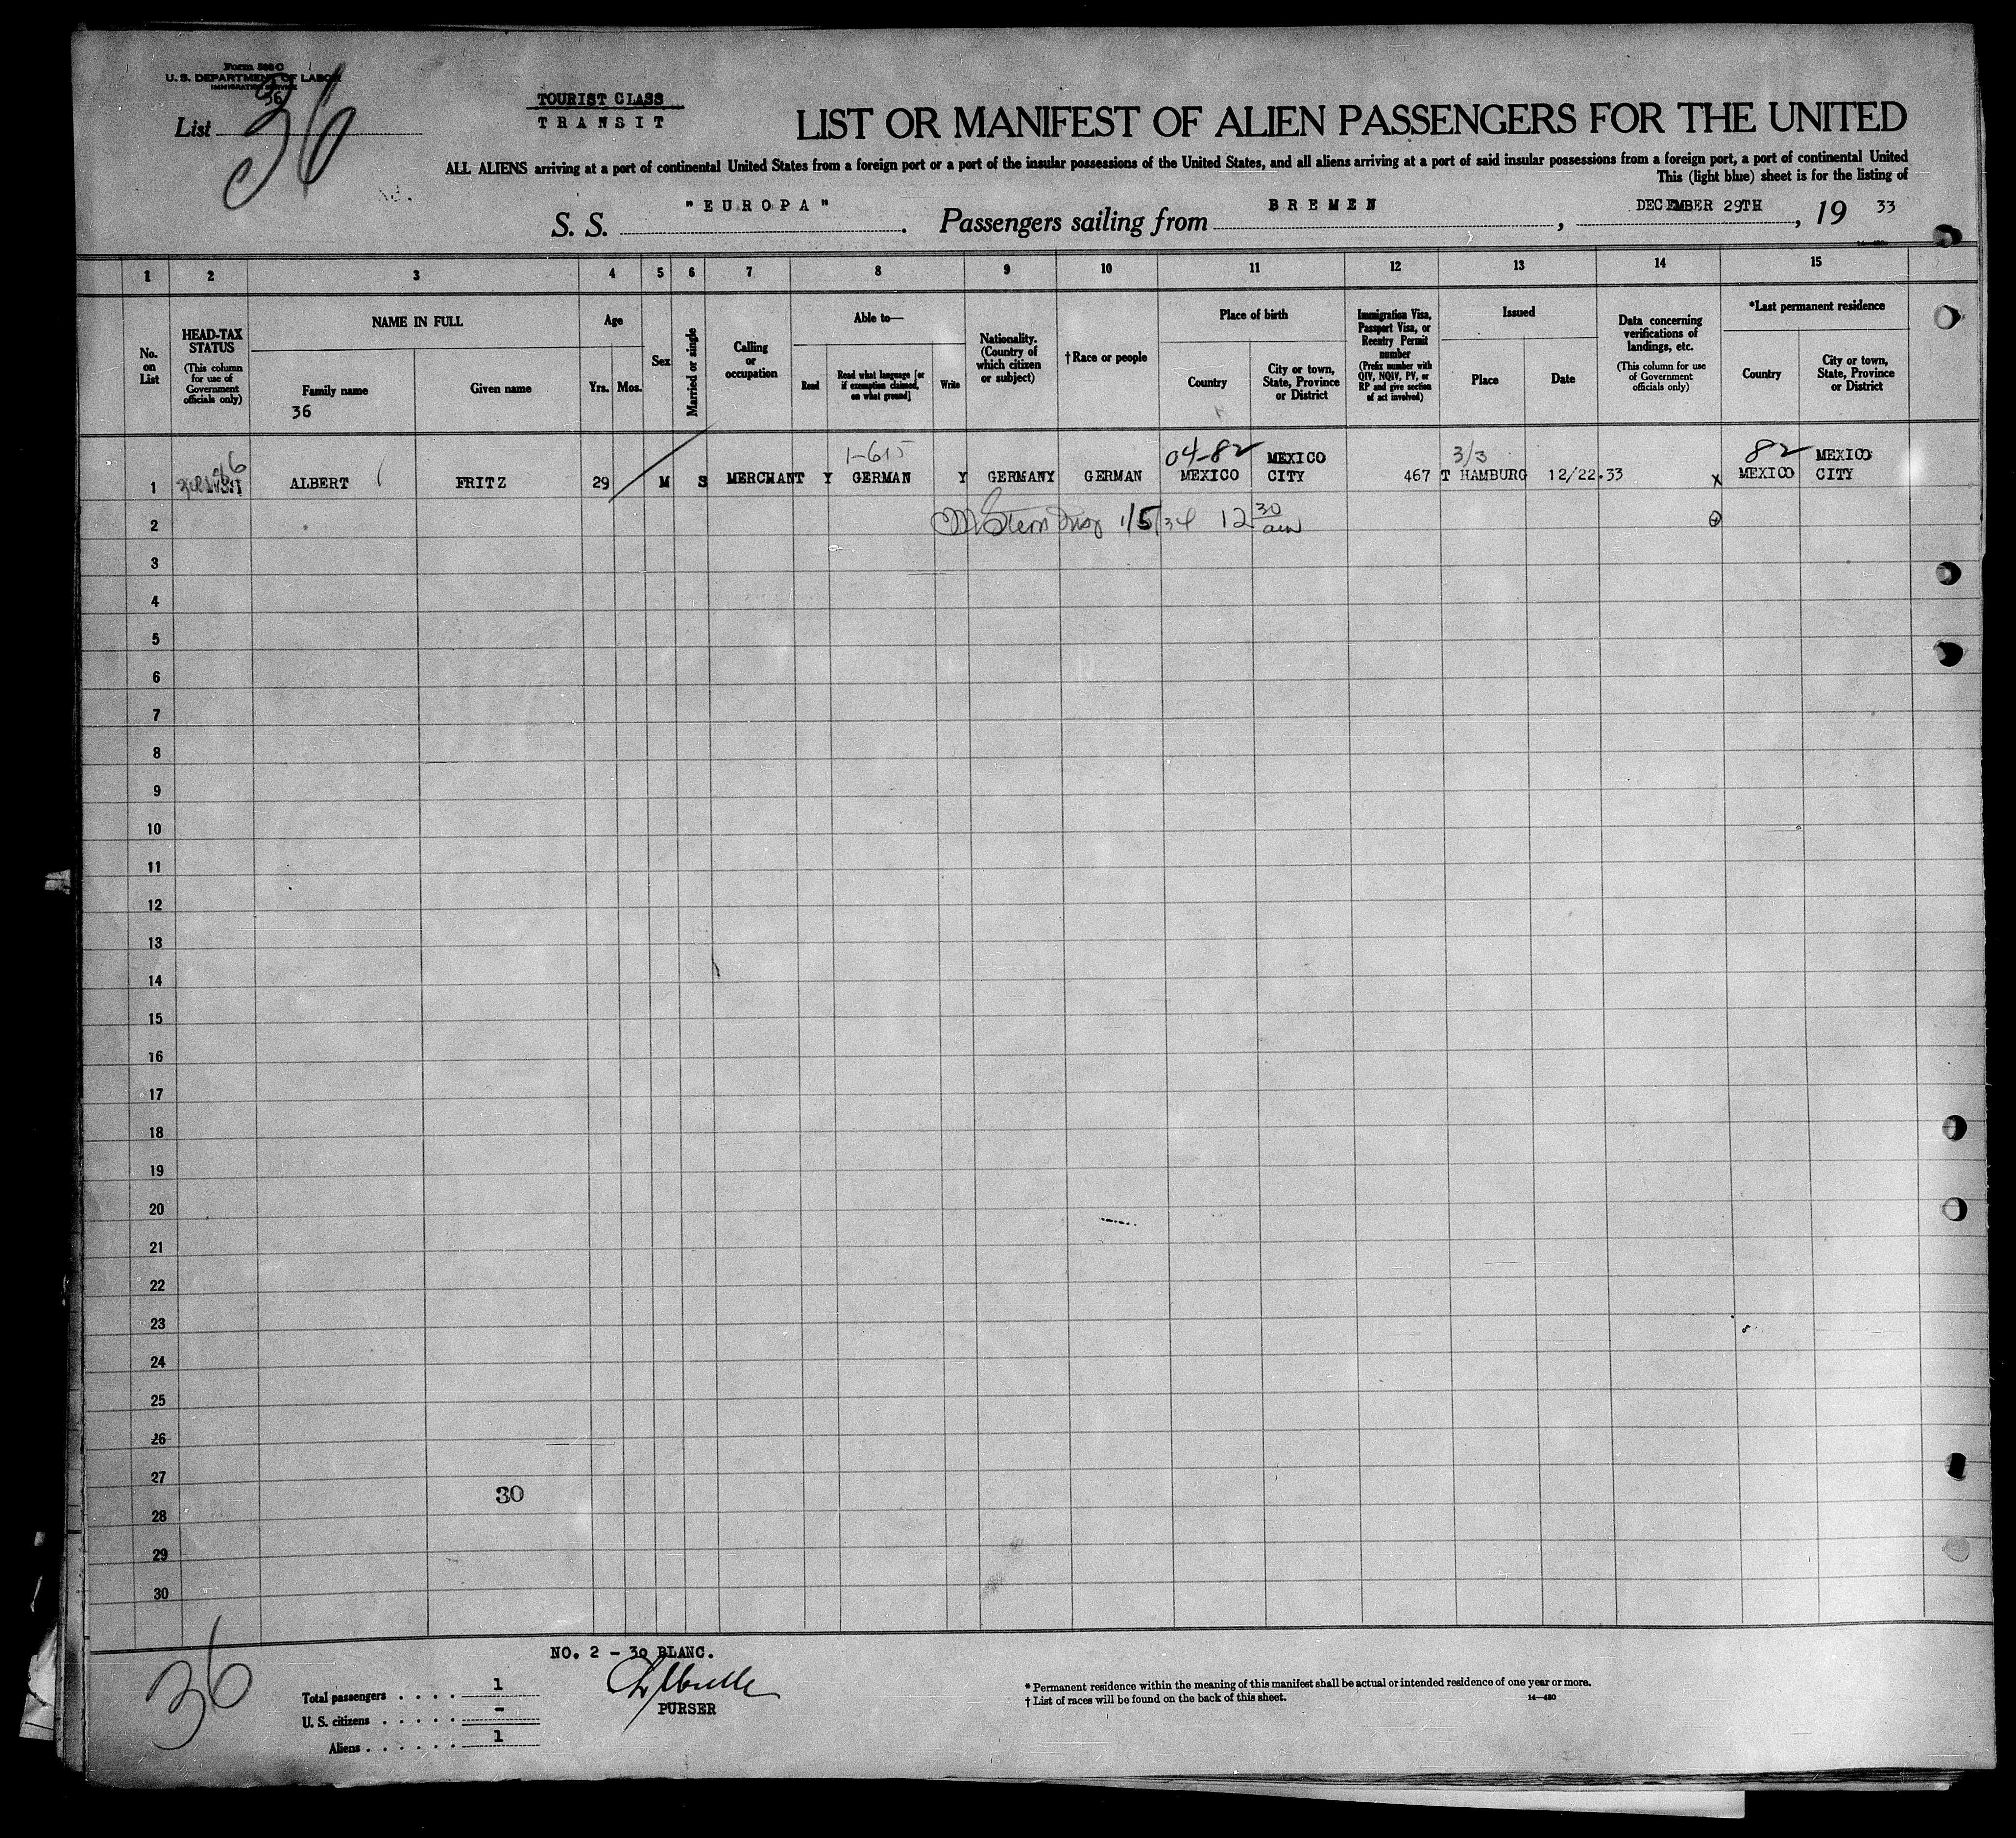 Form 500 C
U. S. DEPARTMENT OF LABOR
IMMIGRATION SERVICE
36
List 36
TOURIST CLASS
TRANSIT
LIST OR MANIFEST OF ALIEN PASSENGERS FOR THE UNITED
ALL ALIENS arriving at a port of continental United States from a foreign port or a port of the insular possessions of the United States, and all aliens arriving at a port of said insular possessions from a foreign port, a port of continental United
This (light blue) sheet is for the listing of
S. S. "EUROPA". Passengers sailing from BREMEN, DECEMBER 29TH, 19 33
1 2 3 4 5 6 7 8 9 10 11 12 13 14 15
No. on List
HEAD-TAX STATUS
(This column for use of Government officials only)
NAME IN FULL
Family name
36
Given name
Age
Yrs. Mos.
Sex
Married or single
Calling or occupation
Able to—
Read
Read what language [or if exemption claimed, on what ground]
Write
Nationality. (Country of which citizen or subject)
†Race or people
Place of birth
Country
City or town, State, Province or District
Immigration Visa, Passport Visa, or Reentry Permit number
(Prefix number with QIV, NQIV, PV, or RP and give section of act involved)
Issued
Place
Date
Data concerning verifications of landings, etc.
(This column for use of Government officials only)
*Last permanent residence
Country
City or town, State, Province or District
1-615 04-82 3/3 82
1 ALBERT FRITZ 29 M S MERCHANT Y GERMAN Y GERMANY GERMAN MEXICO MEXICO CITY 467 T HAMBURG 12/22.33 x MEXICO MEXICO CITY
2 Stern Insp 1/5/34 12 30 am
3
4
5
6
7
8
9
10
11
12
13
14
15
16
17
18
19
20
21
22
23
24
25
26
27
30
28
29
30
NO. 2 - 30 BLANC.
36
Total passengers . . . . 1
U. S. citizens . . . . . -
Aliens . . . . . . 1
PURSER
* Permanent residence within the meaning of this manifest shall be actual or intended residence of one year or more.
† List of races will be found on the back of this sheet.
14—480